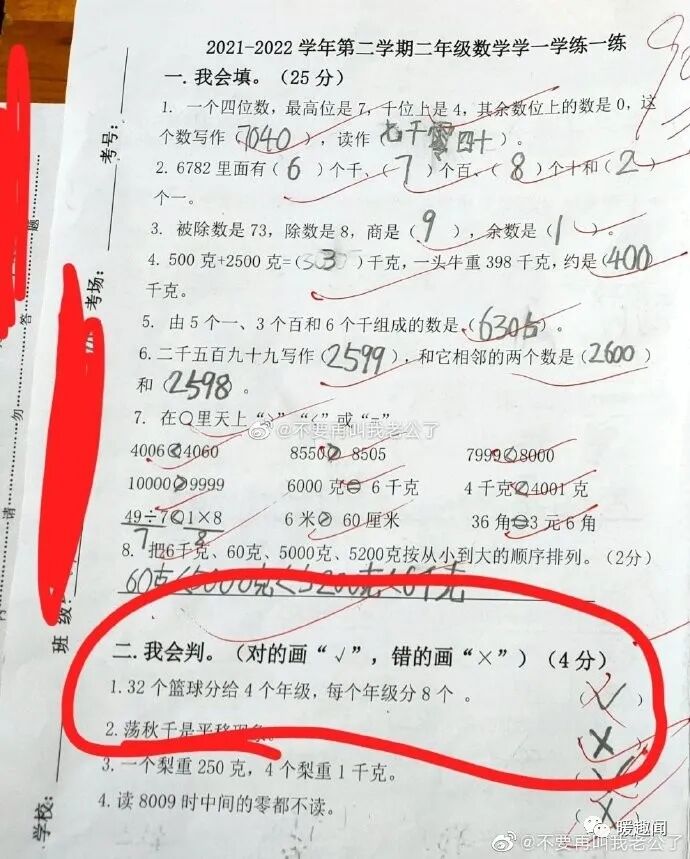 2021-2022 学年第二学期二年级数学学一学练一练
一.我会填。（25 分）
1. 一个四位数，最高位是 7，千位上是 4，其余数位上的数是 0，这
个数写作（7040），读作（七千零四十）。
2. 6782 里面有（6）个千、（7）个百、（8）个十和（2）
个一。
3. 被除数是 73，除数是 8，商是（9），余数是（1）。
4. 500 克+2500 克=（3）千克，一头牛重 398 千克，约是（400）
千克。
5. 由 5 个一、3 个百和 6 个千组成的数是（6305）。
6. 二千五百九十九写作（2599），和它相邻的两个数是（2600）
和（2598）。
7. 在○里天上“>”“<”或“=”
4006<4060 8550>8505 7999<8000
10000>9999 6000 克=6 千克 4 千克<4001 克
49÷7<1×8 6 米>60 厘米 36 角=3 元 6 角
7 8
8. 把6千克、60克、5000克、5200克按从小到大的顺序排列。（2分）
60克<5000克<5200克<6千克
二.我会判。（对的画“√”，错的画“×”）（4 分）
1. 32 个篮球分给 4 个年级，每个年级分 8 个 。 （√）
2. 荡秋千是平移现象。 （×）
3. 一个梨重 250 克，4 个梨重 1 千克。 （√）
4. 读 8009 时中间的零都不读。 （×）
考号：
考场：
班级：
学校：
题
答
勿
请
@不要再叫我老公了
暖趣闻
@不要再叫我老公了